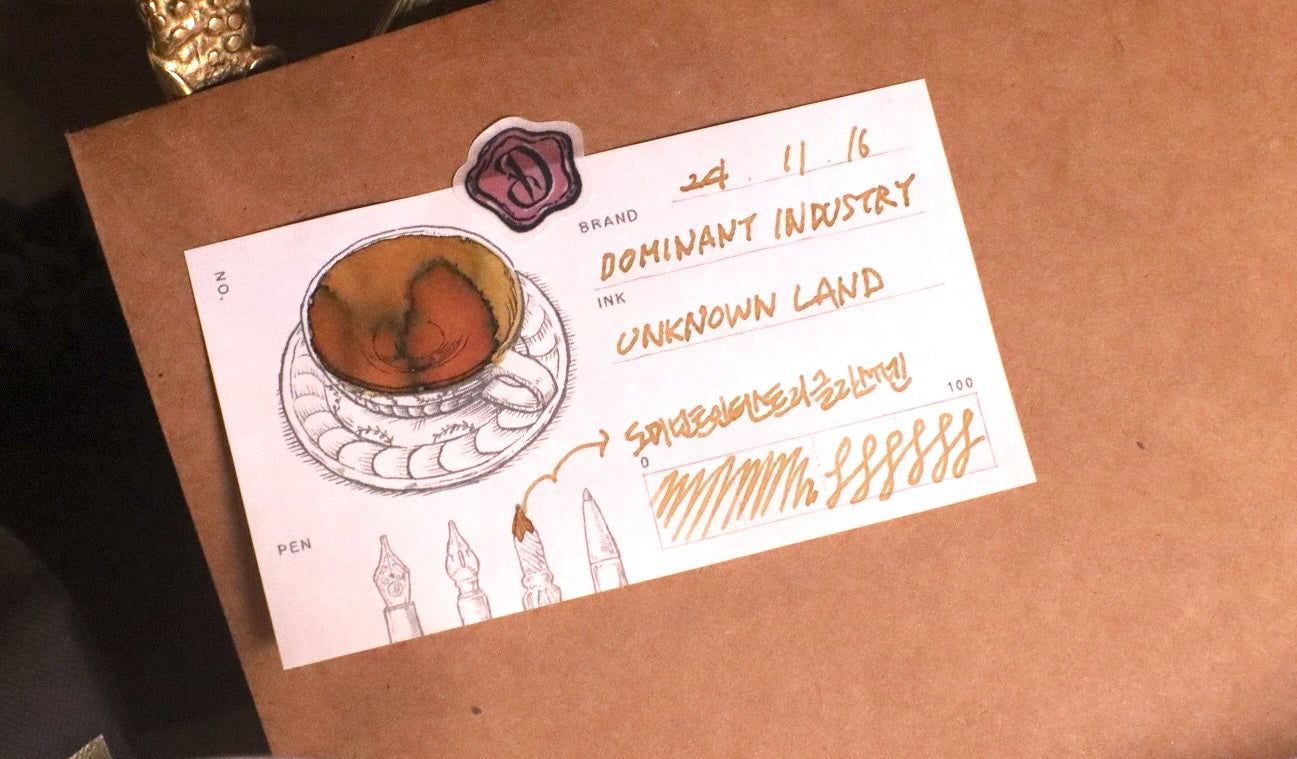 D
24 . 11 . 16
BRAND
DOMINANT INDUSTRY
NO.
INK
UNKNOWN LAND
도미넌트인더스트리 글라스펜
0
100
PEN